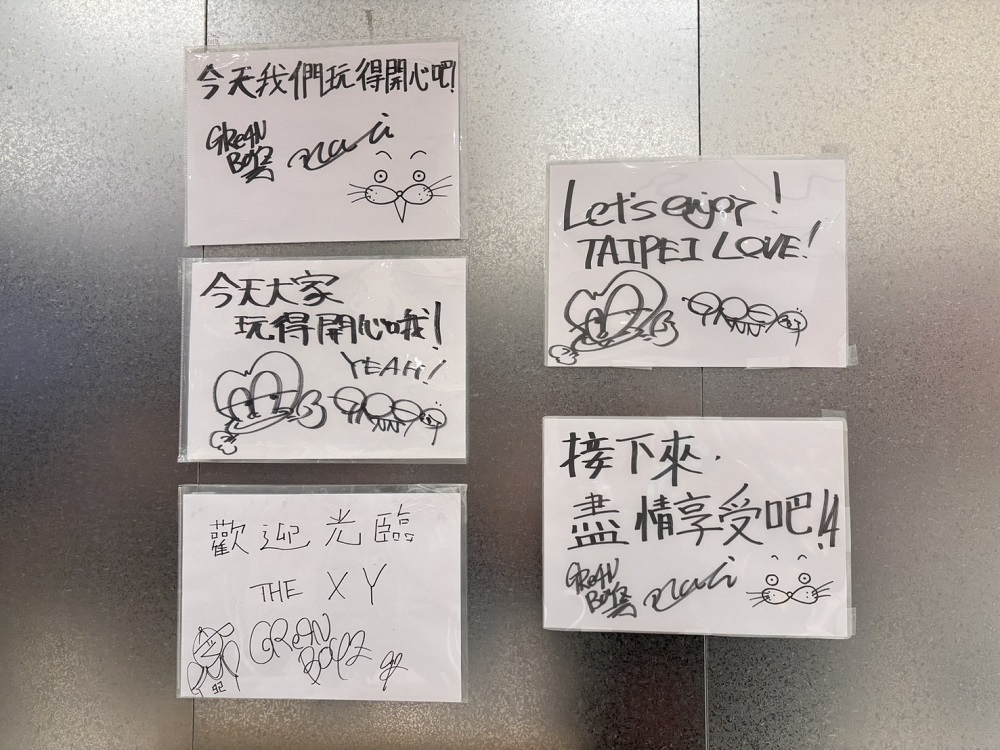 今天我們玩得開心吧!
GReAN
BOYZ
今天大家
玩得開心哦!
YEAH!
歡迎光臨
THE X Y
GREAN
BOYZ
92
Let's enjoy!
TAIPEI LOVE!
接下來.
盡情享受吧!!
GReAN
BOYZ